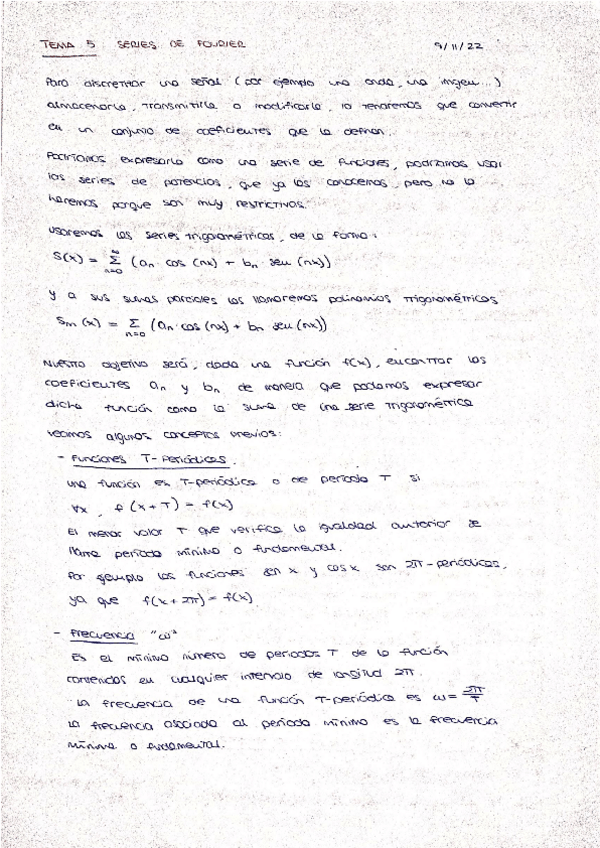 TEMA 5 SERIES DE FOURIER 9/11/22
Para discretizar una señal (por ejemplo una onda, una imagen...)
almacenarla, transmitirla o modificarla, lo tenemos que convertir
en un conjunto de coeficientes que la definan.
Podríamos expresarla como una serie de funciones, podríamos usar
las series de potencias, que ya las conocemos, pero no lo
haremos porque son muy restrictivos.
Usaremos las series trigonométricas, de la forma:
S(x) = ∑_{n=0}^{∞} (an · cos (nx) + bn · sen (nx))
y a sus sumas parciales las llamaremos polinomios trigonométricos
Sm (x) = ∑_{n=0} (an · cos (nx) + bn sen (nx))
Nuestro objetivo será, dada una función f(x), encontrar los
coeficientes an y bn de manera que podamos expresar
dicha función como la suma de una serie trigonométrica
Veamos algunos conceptos previos:
- Funciones T-Periódicas.
Una función es T-periódica o de periodo T si
∀x, f(x+T) = f(x)
El menor valor T que verifica la igualdad anterior se
llama periodo mínimo o fundamental.
Por ejemplo las funciones sen x y cos x son 2π-periódicas,
ya que f(x+2π) = f(x)
- Frecuencia "ω"
Es el mínimo número de periodos T de la función
contenidos en cualquier intervalo de longitud 2π.
La frecuencia de una función T-periódica es ω = 2π/T
La frecuencia asociada al periodo mínimo es la frecuencia
mínima o fundamental.